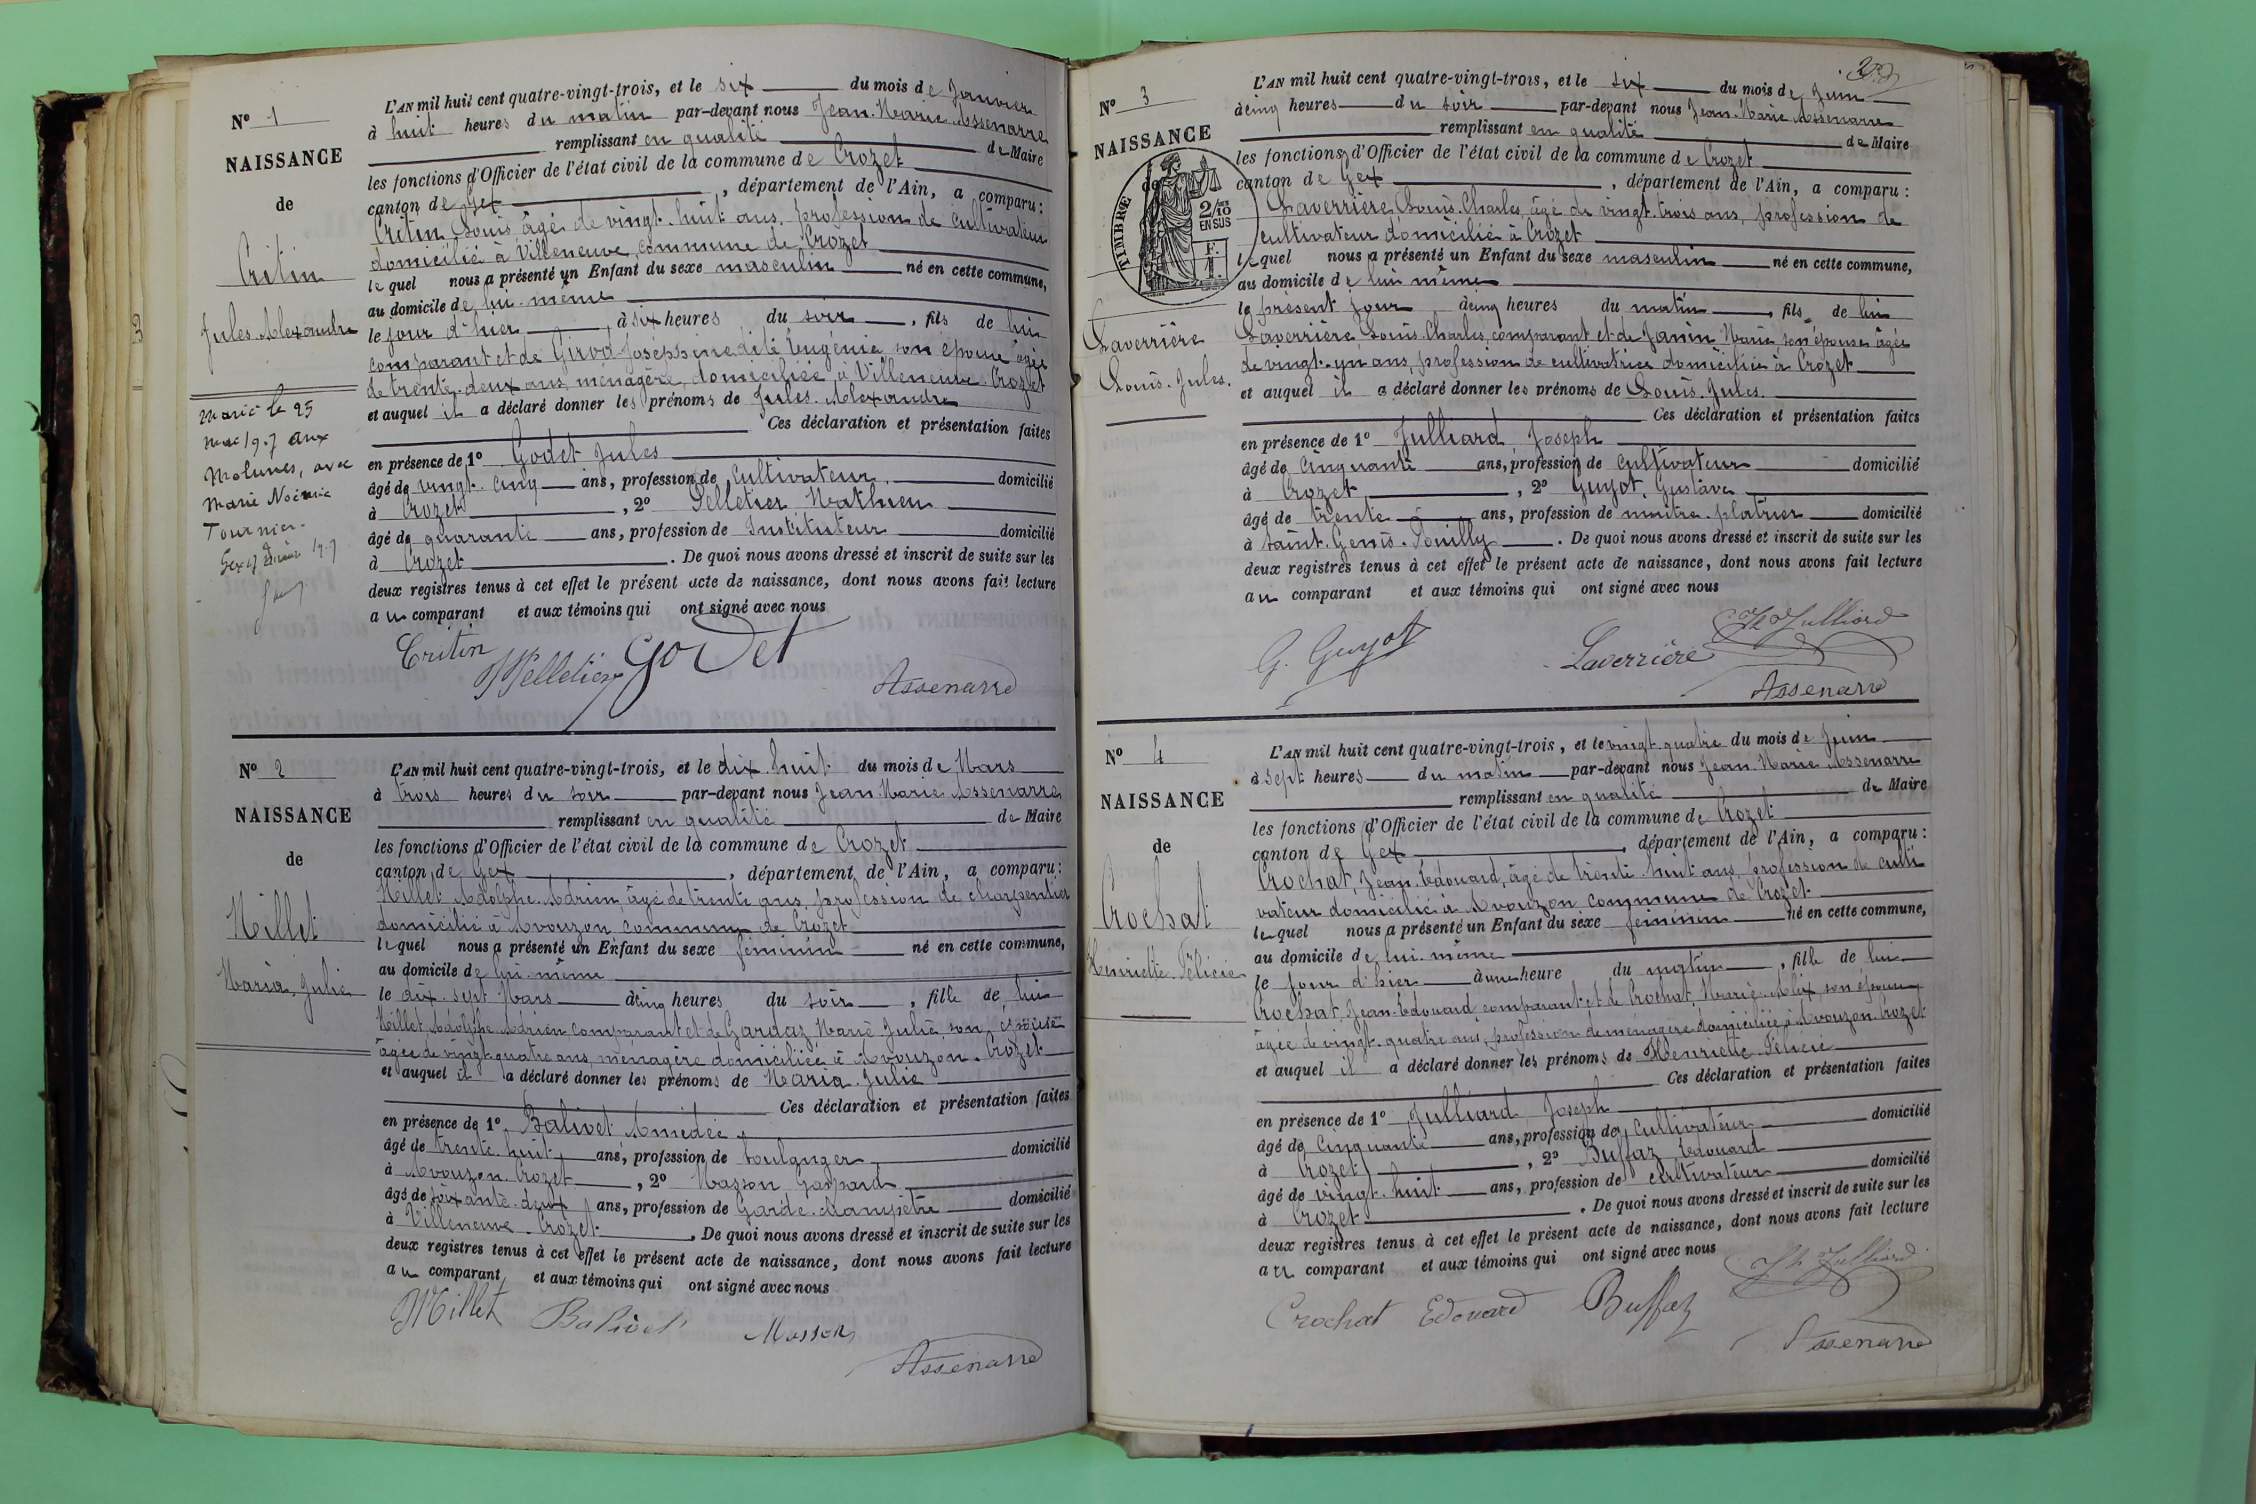 N° 1
NAISSANCE
de
Critin
Jules Alexandre
Marié le 25
mai 1907 aux
Molunes, avec
Marie Noémie
Tournier.
L'AN mil huit cent quatre-vingt-trois, et le six du mois de Janvier
à huit heures du matin par-devant nous Jean-Marie Assenarre
remplissant en qualité de Maire
les fonctions d'Officier de l'état civil de la commune de Crozet
canton de Gex, département de l'Ain, a comparu:
Critin Louis âgé de vingt-huit ans, profession de cultivateur
domicilié à Villeneuve, commune de Crozet
lequel nous a présenté un Enfant du sexe masculin né en cette commune,
au domicile de lui-même
le jour d'hier, à six heures du soir, fils de lui
comparant et de Girod Joséphine dite Eugénie son épouse âgée
de trente-deux ans, ménagère, domiciliée à Villeneuve-Crozet
et auquel il a déclaré donner les prénoms de Jules-Alexandre
Ces déclaration et présentation faites
en présence de 1° Godet Jules
âgé de vingt-cinq ans, profession de cultivateur, domicilié
à Crozet, 2° Pelletier Mathieu
âgé de quarante ans, profession de Instituteur domicilié
à Crozet. De quoi nous avons dressé et inscrit de suite sur les
deux registres tenus à cet effet le présent acte de naissance, dont nous avons fait lecture
au comparant et aux témoins qui ont signé avec nous
Critin
Pelletier
Godet
Assenarre
N° 2
NAISSANCE
de
Millet
Maria, Julie
L'AN mil huit cent quatre-vingt-trois, et le dix-huit du mois de Mars
à trois heures du soir par-devant nous Jean-Marie Assenarre
remplissant en qualité de Maire
les fonctions d'Officier de l'état civil de la commune de Crozet
canton de Gex, département de l'Ain, a comparu:
Millet Adolphe-Adrien, âgé de trente ans, profession de charpentier
domicilié à Avouzon commune de Crozet
lequel nous a présenté un Enfant du sexe féminin né en cette commune,
au domicile de lui-même
le dix-sept Mars à cinq heures du soir, fille de lui
Millet, Adolphe-Adrien, comparant et de Gardaz Marie Julie son épouse
âgée de vingt-quatre ans, ménagère domiciliée à Avouzon-Crozet
et auquel il a déclaré donner les prénoms de Maria-Julie
Ces déclaration et présentation faites
en présence de 1° Balivet Amédée
âgé de trente-huit ans, profession de boulanger, domicilié
à Avouzon-Crozet, 2° Masson Gaspard
âgé de soixante-deux ans, profession de Garde-champêtre domicilié
à Villeneuve-Crozet. De quoi nous avons dressé et inscrit de suite sur les
deux registres tenus à cet effet le présent acte de naissance, dont nous avons fait lecture
au comparant et aux témoins qui ont signé avec nous
Millet
Balivet
Masson
Assenarre
N° 3
NAISSANCE
de
TIMBRE
2/10
EN SUS
Laverrière
Louis-Jules.
L'AN mil huit cent quatre-vingt-trois, et le six du mois de Juin
à cinq heures du soir par-devant nous Jean-Marie Assenarre
remplissant en qualité de Maire
les fonctions d'Officier de l'état civil de la commune de Crozet
canton de Gex, département de l'Ain, a comparu:
Laverrière Louis-Charles, âgé de vingt-trois ans, profession de
cultivateur domicilié à Crozet
lequel nous a présenté un Enfant du sexe masculin né en cette commune,
au domicile de lui-même
le présent jour à cinq heures du matin, fils de lui
Laverrière Louis-Charles, comparant et de Janin Marie, son épouse âgée
de vingt-un ans, profession de cultivatrice domiciliée à Crozet
et auquel il a déclaré donner les prénoms de Louis-Jules.
Ces déclaration et présentation faites
en présence de 1° Julliard Joseph
âgé de cinquante ans, profession de cultivateur domicilié
à Crozet, 2° Guyot, Gustave
âgé de trente ans, profession de maitre-platrier domicilié
à Saint-Genis-Pouilly. De quoi nous avons dressé et inscrit de suite sur les
deux registres tenus à cet effet le présent acte de naissance, dont nous avons fait lecture
au comparant et aux témoins qui ont signé avec nous
G. Guyot
Laverrière
Jh Julliard
Assenarre
N° 4
NAISSANCE
de
Crochat
Henriette-Félicie
L'AN mil huit cent quatre-vingt-trois, et le vingt-quatre du mois de Juin
à sept heures du matin par-devant nous Jean-Marie Assenarre
remplissant en qualité de Maire
les fonctions d'Officier de l'état civil de la commune de Crozet
canton de Gex, département de l'Ain, a comparu:
Crochat, Jean-Edouard, âgé de trente-huit ans, profession de culti
vateur domicilié à Avouzon commune de Crozet
lequel nous a présenté un Enfant du sexe féminin né en cette commune,
au domicile de lui-même
le jour d'hier à une heure du matin, fille de lui
Crochat, Jean-Edouard, comparant et de Crochat, Marie-Alix, son épouse
âgée de vingt-quatre ans, profession de ménagère domiciliée à Avouzon-Crozet
et auquel il a déclaré donner les prénoms de Henriette-Félicie
Ces déclaration et présentation faites
en présence de 1° Julliard Joseph
âgé de cinquante ans, profession de cultivateur domicilié
à Crozet, 2° Buffaz, Edouard
âgé de vingt-huit ans, profession de cultivateur domicilié
à Crozet. De quoi nous avons dressé et inscrit de suite sur les
deux registres tenus à cet effet le présent acte de naissance, dont nous avons fait lecture
au comparant et aux témoins qui ont signé avec nous
Crochat Edouard
Buffaz
Jh Julliard
Assenarre